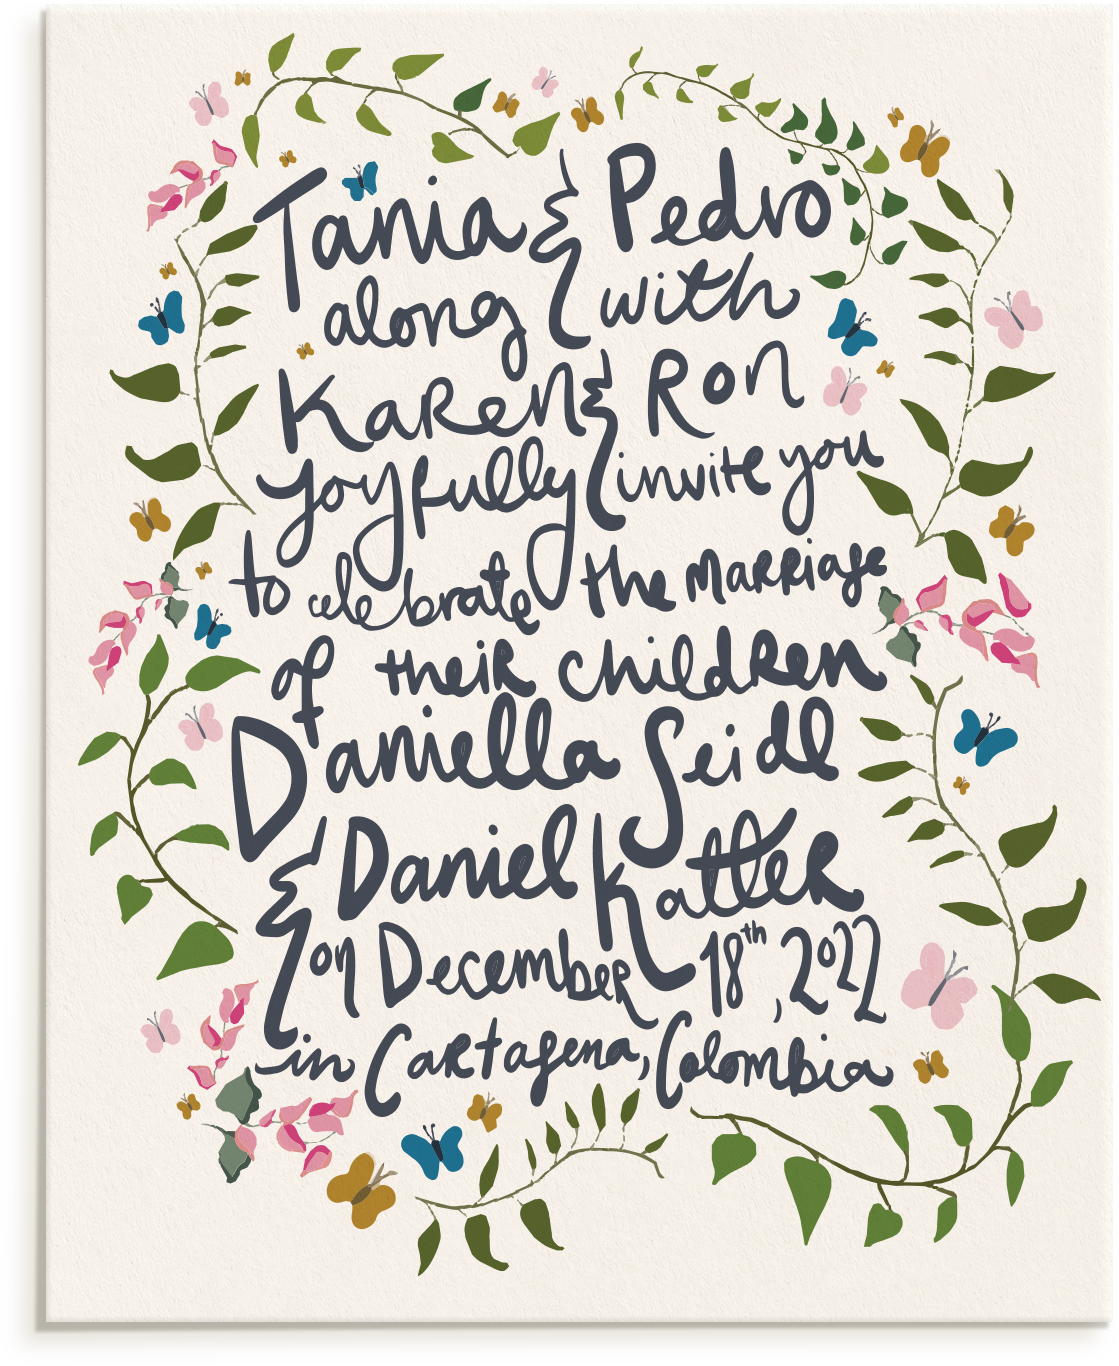 Tania & Pedro
along with
Karen & Ron
joyfully invite you
to celebrate the marriage
of their children
Daniella Seidl
& Daniel Katter
on December 18th, 2022
in Cartagena, Colombia